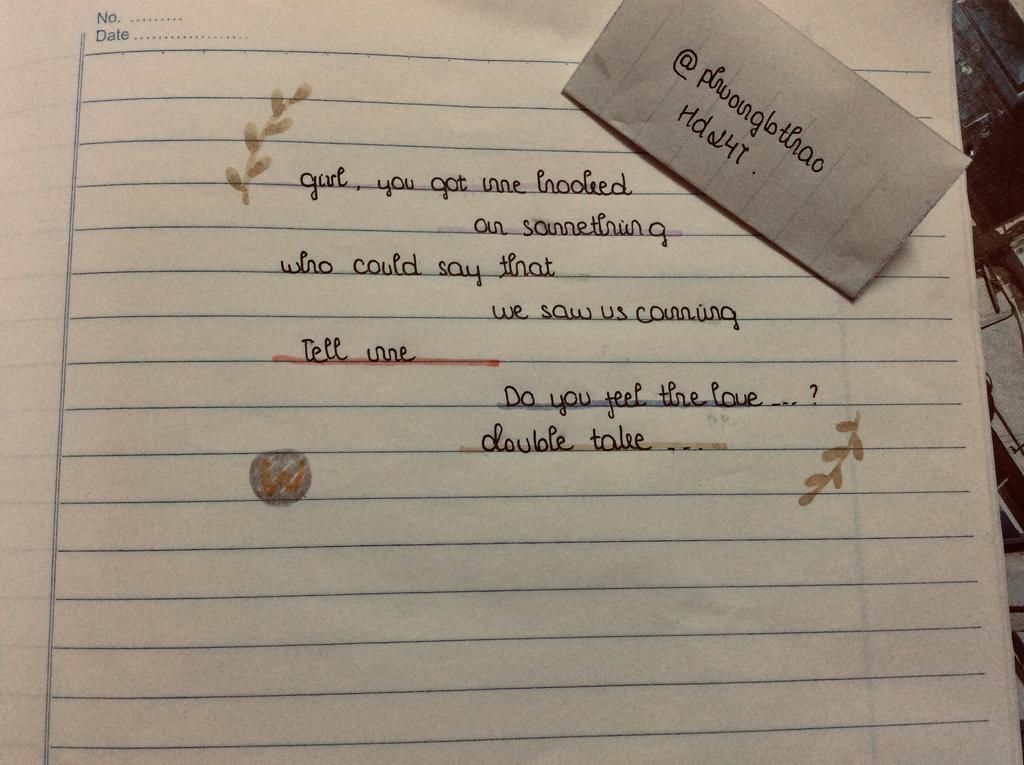 No. .........
Date ...................
@phuongbthao
Hd247.
girl, you got me hooked
on something
who could say that
we saw us coming
Tell me
Do you feel the love ... ?
double take ...
W